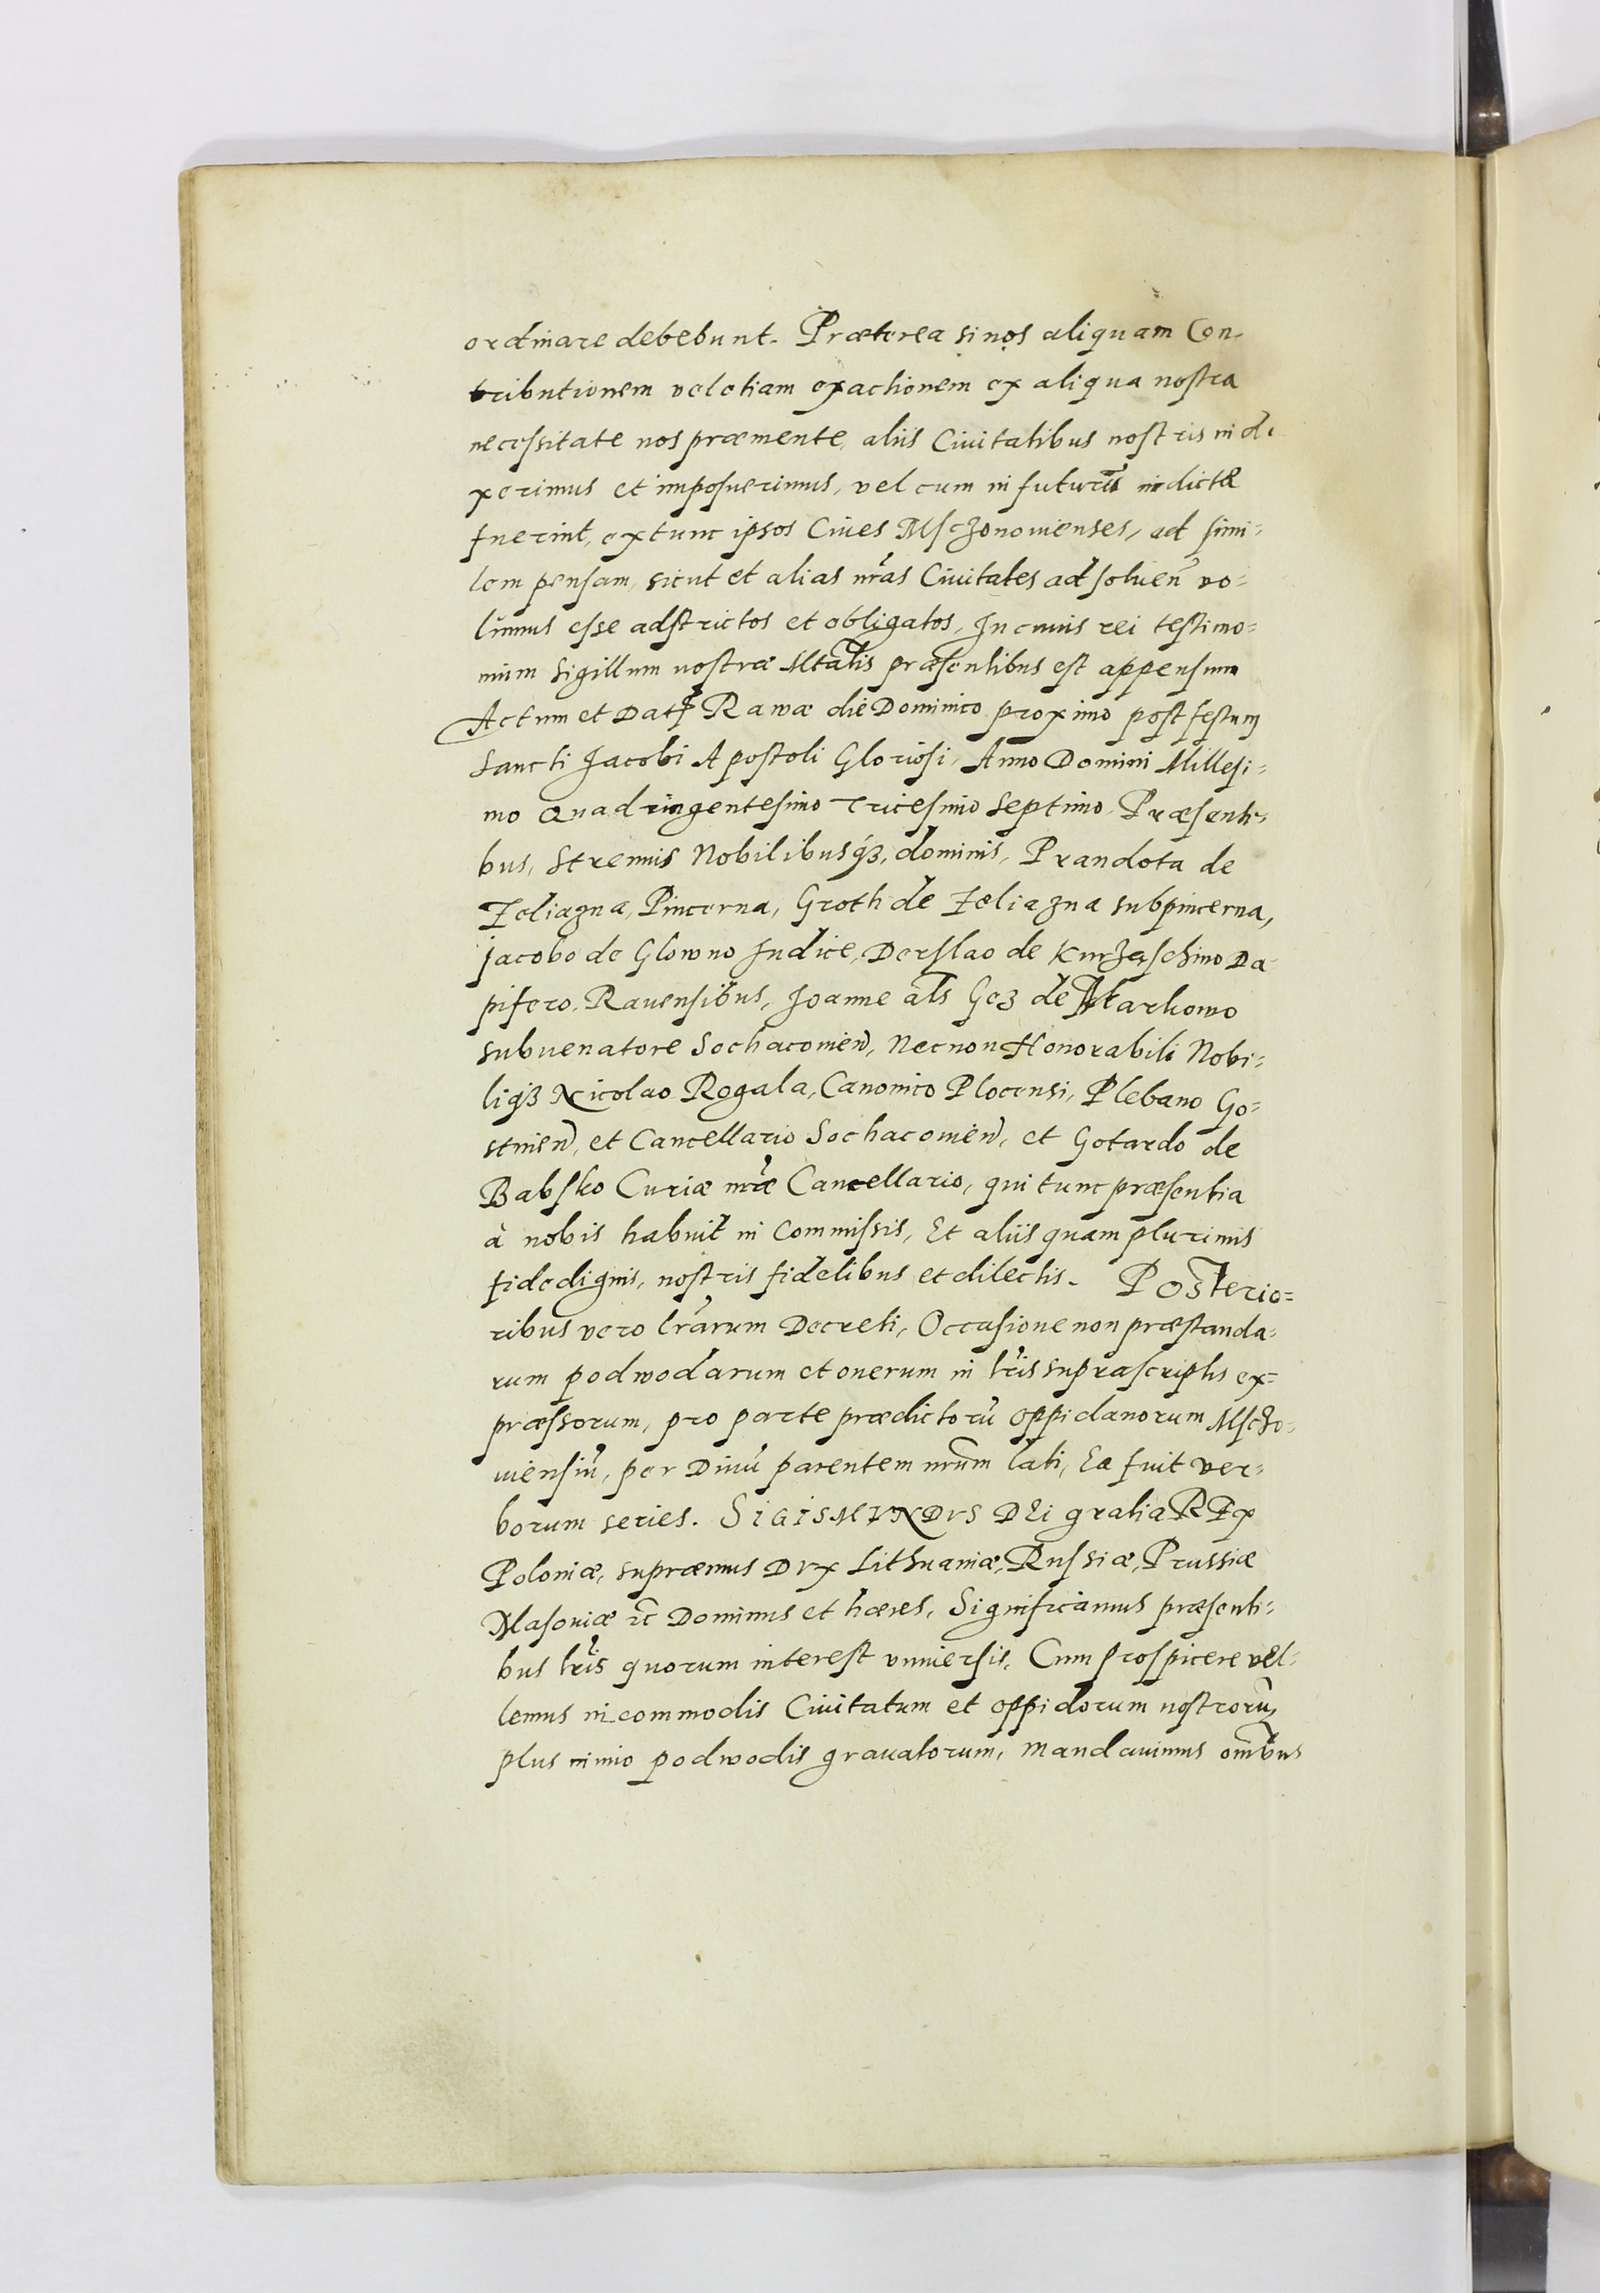 ordinare debebunt. Præterea si nos aliquam Con-
tributionem vel etiam exactionem ex aliqua nostra
necessitate nos præmente, aliis Ciuitatibus nostris indi
xerimus et imposuerimus, vel cum in futurũ indictæ
fuerint, extunc ipsos Ciues Msczonouienses, ad simi=
lem pensam, sicut et alias nr̃as Ciuitates ad soluen̄ vo=
lumus esse adstrictos et obligatos, In cuuis rei testimo=
nium Sigillum nostræ Mtatis præsentibus est appensum
Actum et Dat Rawæ die Dominico proximo post festum
Sancti Jacobi Apostoli Gloriosi, Anno Domini Millesi=
mo Quadringentesimo Tricesimo Septimo, Præsenti=
bus, Strenuis Nobilibusq₃, dominis, Prandota de
Zeliazna, Pincerna, Groth de Zeliazna subpincerna,
Jacobo de Glowno Judice, Derslao de Da=
pifero, Rauensibus, Joanne als Gez de Markowo
subuenatore Sochacouien̄, Necnon Honorabili Nobi=
liq₃ Nicolao Rogala, Canonico Plocensi, Plebano Go=
stinien̄, et Cancellario Sochacouien̄, et Gotardo de
Babsko Curiæ nr̃æ Cancellario, qui tunc præsentia
à nobis habuit in Commissis, Et aliis quam plurimis
fidedignis, nostris fidelibus et dilectis. Posterio=
ribus vero lr̃arum Decreti, Occasione non præstanda=
rum podwodarum et onerum in lr̃is suprascriptis ex=
præssorum, pro parte prædictorũ Oppidanorum Msczo=
uiensiũ, per Diuũ parentem nr̃um lati, Ea fuit ver=
borum series. SIGISMVNDVS DEi gratia REX
Poloniæ, supræmus DVX Lithuaniæ, Russiæ, Prussiæ
Masouiæ ꝛc̄ Dominus et hæres, Significamus præsenti=
bus lr̃is quorum interest vniuersis, Cum prospicere vel=
lemus in commodis Ciuitatum et oppidorum nostrorũ,
plus nimio podwodis grauatorum, mandauimus om̃bus